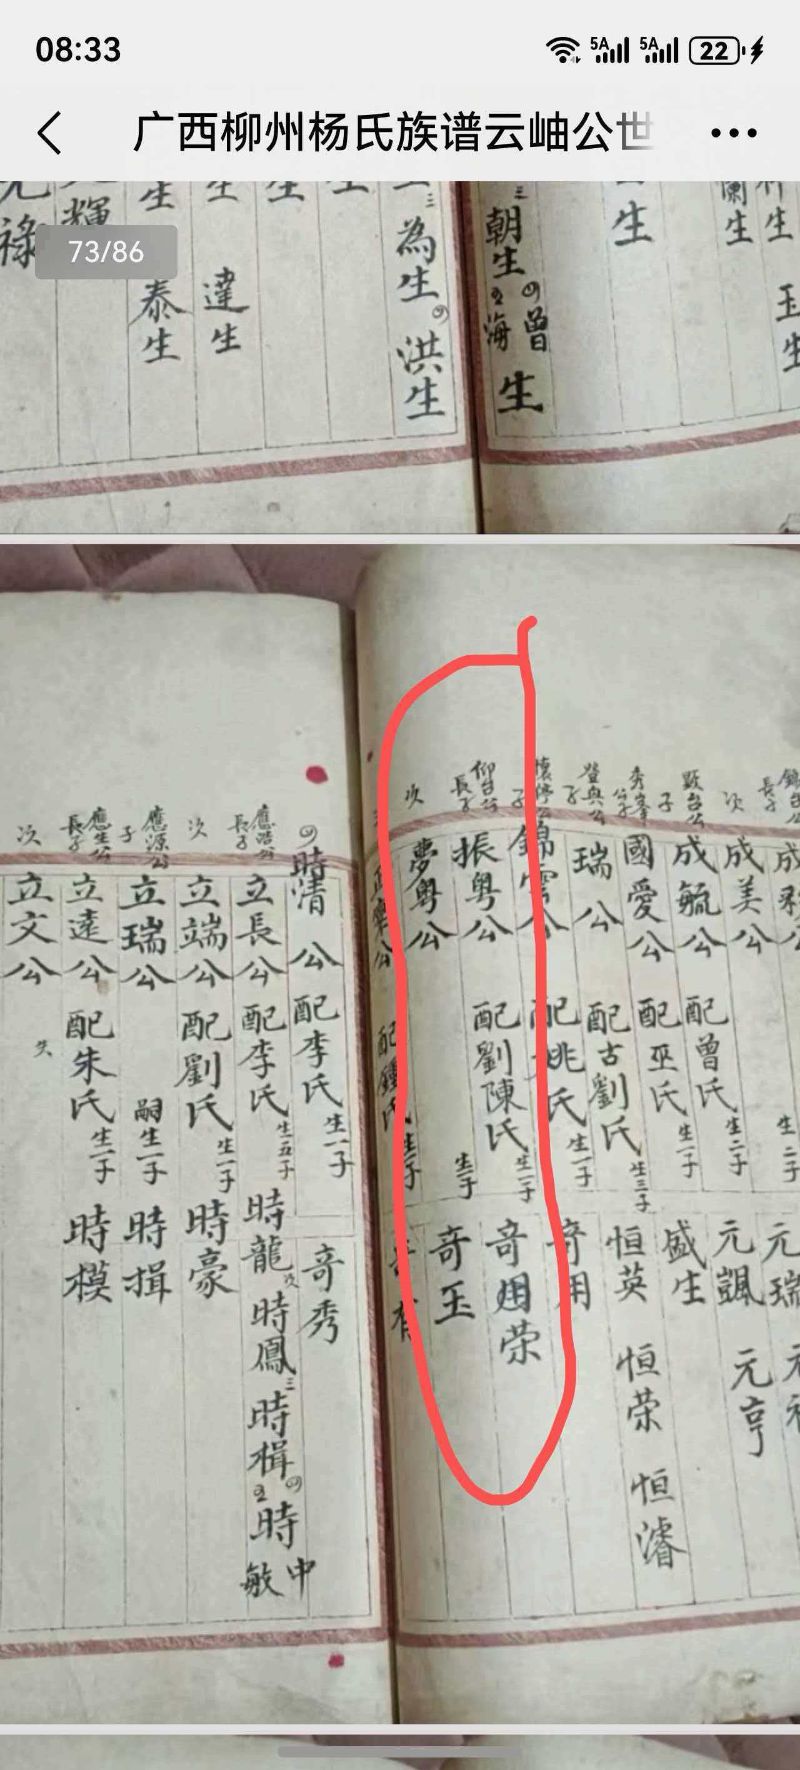 08:33
5A 5A 22
广西柳州杨氏族谱云岫公世
73/86
生
玉生
蘭生
生
曾
朝生
海
生
三
為生
洪生
生
達生
生
泰生
輝
祿
錦台公長子
成
生二子
元瑞
次
成美公
配曾氏
生二子
元凱
元亨
顯台公子
成毓公
配巫氏
生一子
盛生
秀峯公子
國愛公
配古劉氏
生三子
恒英
恒荣
恒濬
登與公子
瑞公
配姚氏
生一子
奇用
懷伊公子
錦雲公
仰台公長子
振粤公
配劉陳氏
生一子
奇荣
次
夢粤公
生一子
奇玉
配鍾氏
生一子
時清公
配李氏
生一子
奇秀
應浩公長子
立長公
配李氏
生五子
時龍
次
時鳳
三
時楫
時中
時敏
次
立端公
配劉氏
生一子
時豪
應源公子
立瑞公
嗣生一子
時揖
應生公長子
立遠公
配朱氏
生一子
時模
次
立文公
失